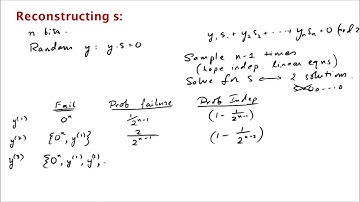 Reconstructing s:
n bits.
Random y : y·s = 0
y₁s₁ + y₂s₂ + ··· yₙsₙ = 0 (mod 2)
Sample n-1 times
(hope indep. linear eqns)
Solve for s ↔ 2 solutions.
0···0
Fail Prob failure Prob Indep
y⁽¹⁾ 0ⁿ 1/2ⁿ⁻¹ (1 - 1/2ⁿ⁻¹)
y⁽²⁾ {0ⁿ, y⁽¹⁾} 2/2ⁿ⁻¹ (1 - 1/2ⁿ⁻²)
y⁽³⁾ {0ⁿ, y⁽¹⁾, y⁽²⁾,